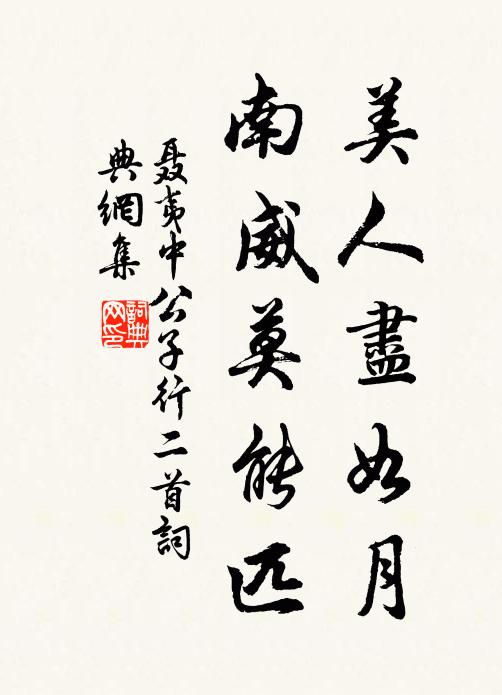 美人盡如月
南威莫能匹
聶夷中公子行二首詞
典網集
詞典网印